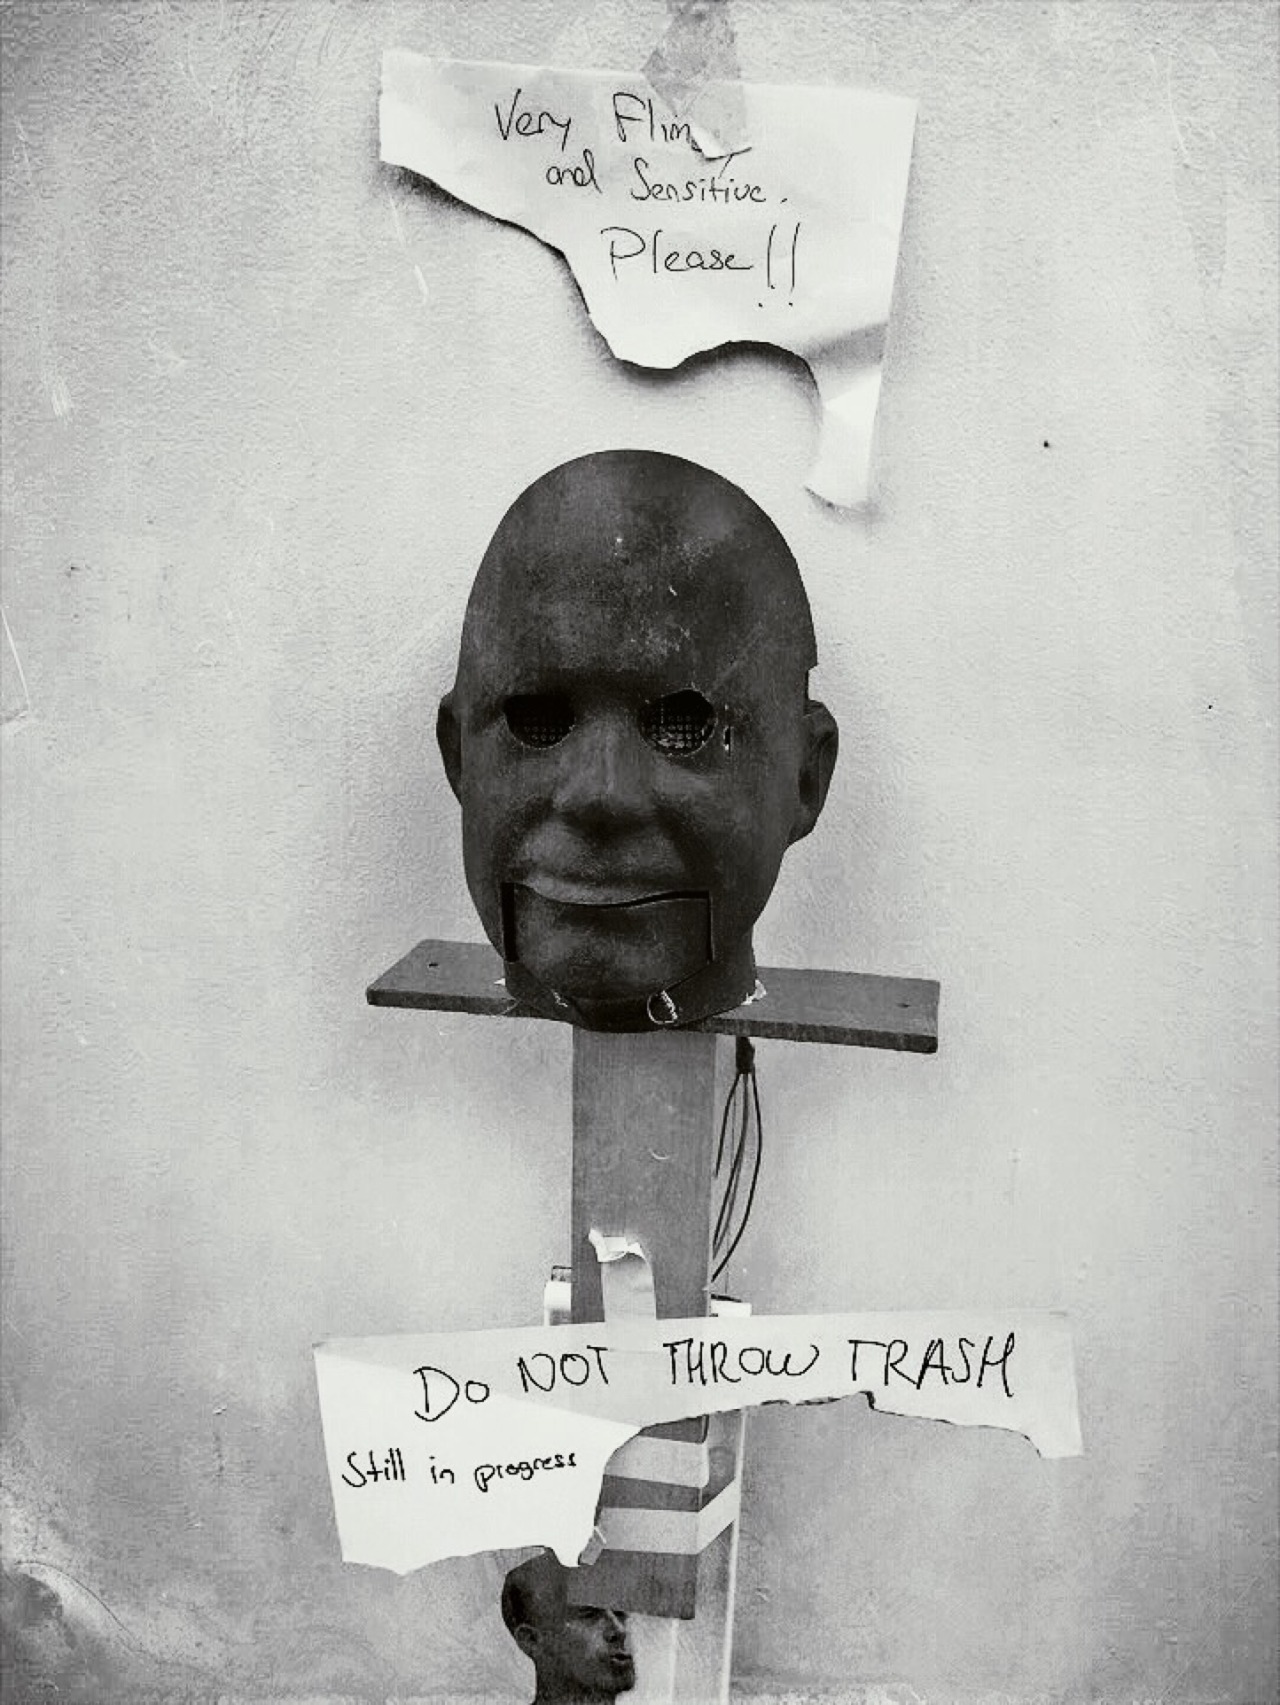 Very Flim
and Sensitive.
Please!!
Do NOT THROW TRASH
Still in progress